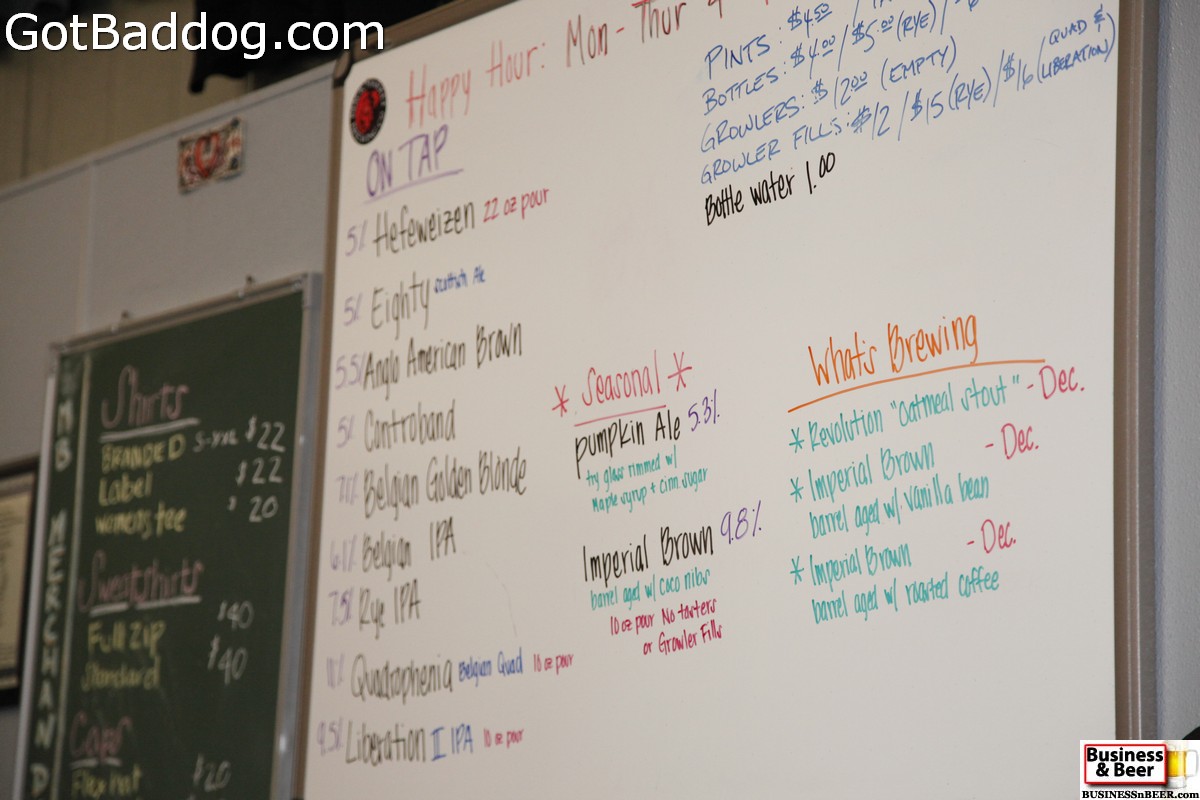 GotBaddog.com
Happy Hour: Mon - Thur 4
PINTS: $4.50 /
BOTTLES: $4.00 / $5.00 (RYE) /
GROWLERS: $12.00 (EMPTY)
GROWLER FILLS: $12 / $15 (RYE) / $16 (QUAD & LIBERATION)
Bottle water 1.00
ON TAP
5% Hefeweizen 22 oz pour
5% Eighty scottish Ale
5.5% Anglo American Brown
5% Contraband
Belgian Golden Blonde
6.1% Belgian IPA
7.5% Rye IPA
Quadrophenia Belgian Quad 10 oz pour
9.5% Liberation II IPA 10 oz pour
* Seasonal *
pumpkin Ale 5.3%
try glass rimmed w/
maple syrup + cinn. sugar
Imperial Brown 9.8%
barrel aged w/ coco nibs
10 oz pour No tasters
or Growler Fills
What's Brewing
* Revolution "oatmeal stout" - Dec.
* Imperial Brown - Dec.
barrel aged w/. vanilla bean
* Imperial Brown - Dec.
barrel aged w/ roasted coffee
MERCHAND
Shirts
BRANDED $22
Label $22
womens tee $20
Sweatshirts
Full Zip $40
Standard $40
Caps
Flex hat $20
Business
& Beer
BUSINESSnBEER.com